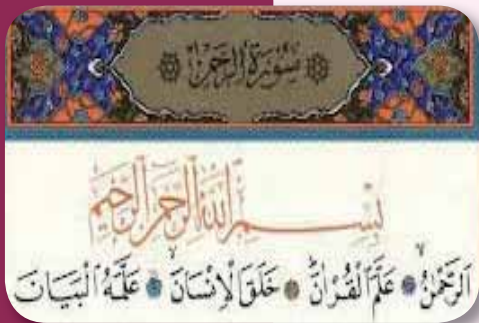 سُورَةُ الرَّحْمٰنِ
بِسْمِ اللّٰهِ الرَّحْمٰنِ الرَّحِيمِ
اَلرَّحْمٰنُ ۙ عَلَّمَ الْقُرْاٰنَ خَلَقَ الْاِنْسَانَ ۙ عَلَّمَهُ الْبَيَانَ